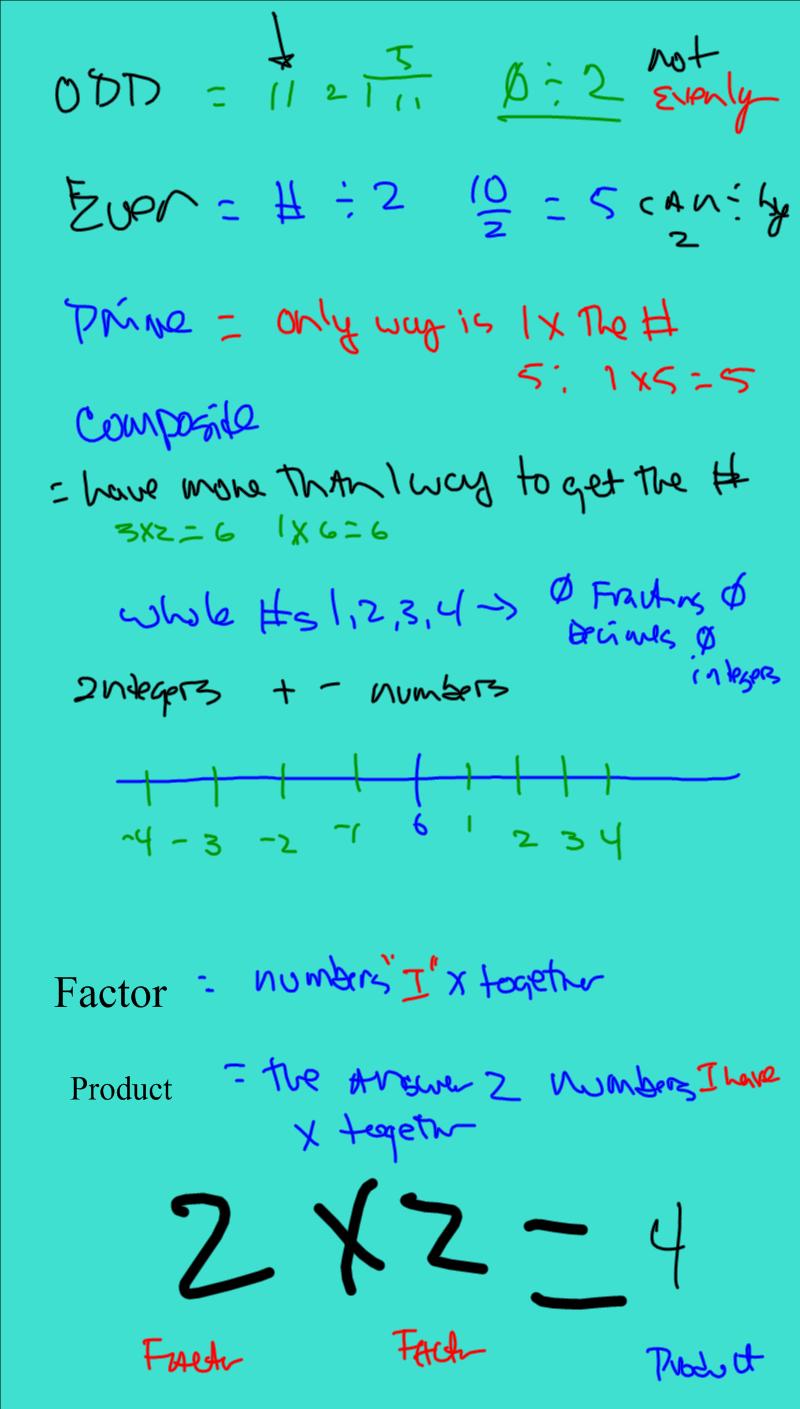 not
ODD = 11 2 5 1 11 Ø ÷ 2 Evenly
Even = # ÷ 2 10/2 = 5 CAN ÷ by
2
Prime = only way is 1 x The #
5: 1 x 5 = 5
Composite
= have more Than 1 way to get the #
3x2 = 6 1 x 6 = 6
whole #s 1,2,3,4 → Ø Fractions Ø
Decimals Ø
integers
Integers + - numbers
-4 -3 -2 -1 0 1 2 3 4
Factor = numbers "I" x together
Product = the Answer 2 numbers I have
x together
2 x 2 = 4
Factor Factor Product